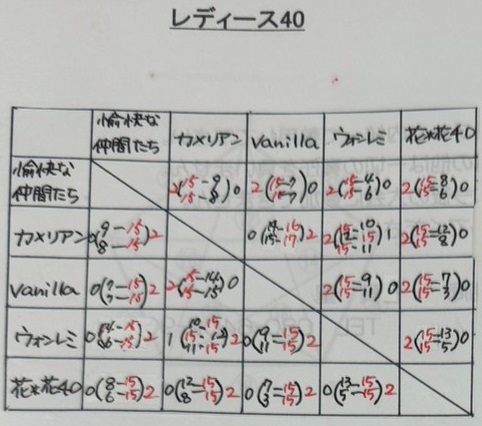 レディース40
愉快な 仲間たち カメリアン Vanilla ウォンレミ 花*花40
愉快な 仲間たち 2(15-9 15-8)0 2(15-7 15-7)0 2(15-4 15-6)0 2(15-8 15-6)0
カメリアン 0(9-15 8-15)2 0(14-16 15-17)2 2(15-10 15-11)1 2(15-12 15-8)0
Vanilla 0(7-15 7-15)2 2(16-14 17-15)0 2(15-9 15-11)0 2(15-7 15-3)0
ウォンレミ 0(4-15 6-15)2 1(10-15 11-15)2 0(9-15 11-15)2 2(15-13 15-5)0
花*花40 0(8-15 6-15)2 0(12-15 8-15)2 0(7-15 3-15)2 0(13-15 5-15)2